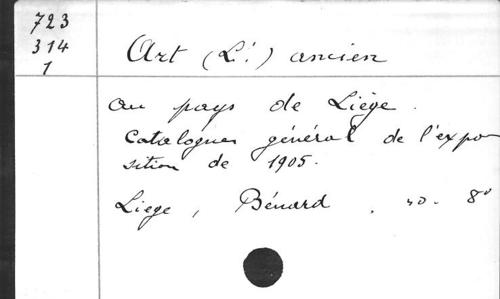 723
314
1
Art (L') ancien
au pays de Liège.
Catalogues général de l'expo
sition de 1905.
Liege, Bénard, 8°